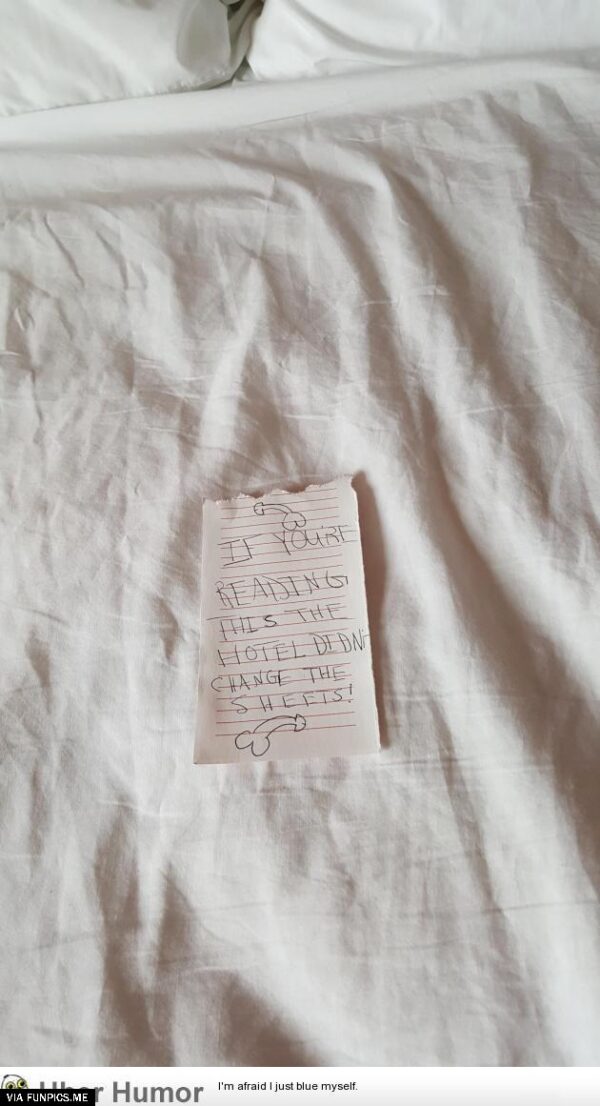 IF YOU'RE
READING
THIS THE
HOTEL DIDN'T
CHANGE THE
SHEETS!
Uber Humor
I'm afraid I just blue myself.
VIA FUNPICS.ME